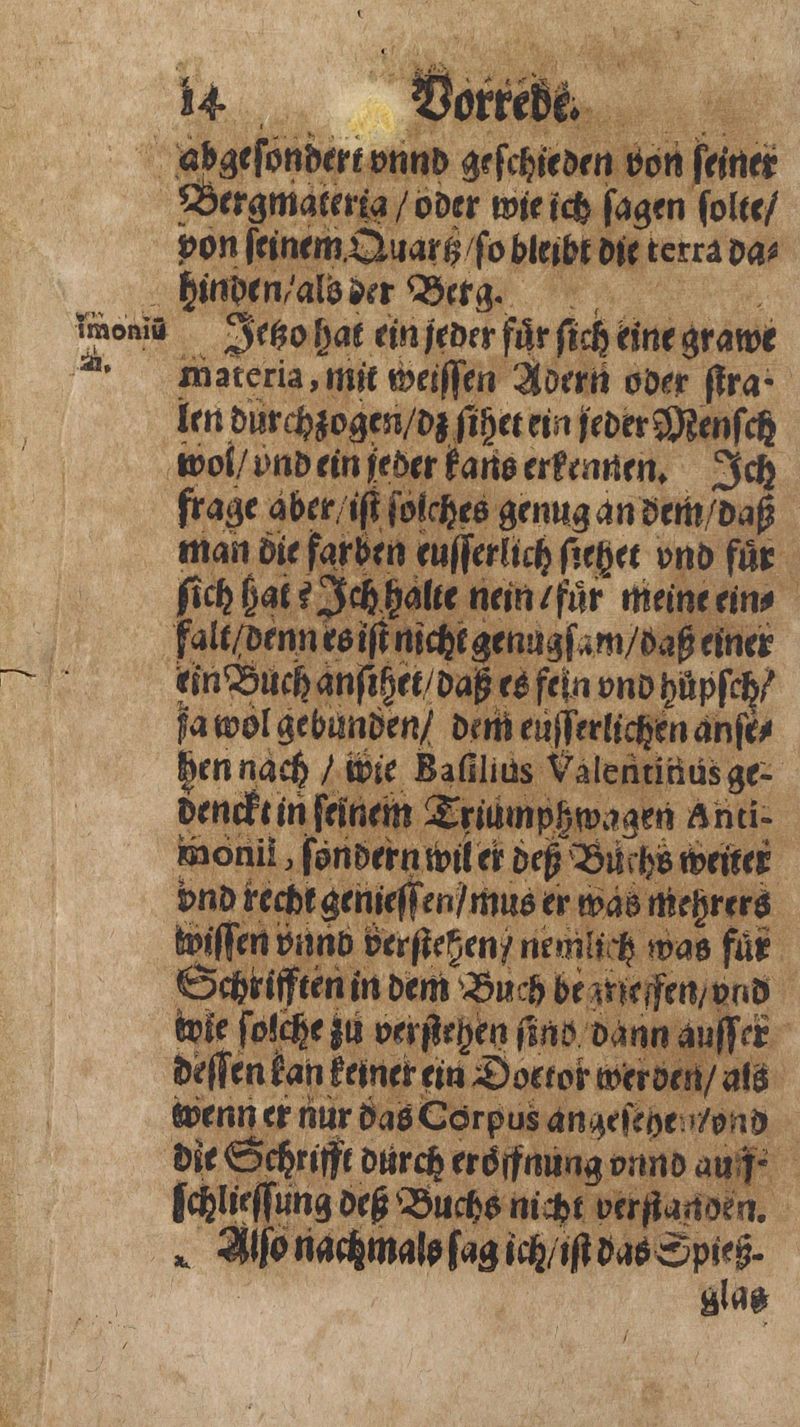 14 Vorrede.
abgeſondert vnnd geſchieden von ſeiner
Bergmateria / oder wie ich ſagen ſolte/
von ſeinem Quartz/ſo bleibt die terra da⸗
hinden/als der Berg.
imoniũ
Jetzo hat ein jeder fuͤr ſich eine grawe
materia, mit weiſſen Adern oder ſtra-
len durchzogen/dz ſihet ein jeder Menſch
wol/ vnd ein jeder kans erkennen. Ich
frage aber/iſt ſolches genug an dem/daß
man die farben euſſerlich ſiehet vnd fuͤr
ſich hat? Ich halte nein/fuͤr meine ein⸗
falt/denn es iſt nicht genugſam/daß einer
ein Buch anſihet/daß es fein vnd huͤpſch/
ja wol gebunden/ dem euſſerlichen anſe⸗
hen nach / wie Baſilius Valentinus ge-
denckt in ſeinem Triumphwagen Anti-
monii, ſondern wil er deß Buchs weiter
vnd recht genieſſen/mus er was mehrers
wiſſen vnnd verſtehen/ nemlich was fuͤr
Schrifften in dem Buch begrieffen/vnd
wie ſolche zu verſtehen ſind/dann auſſer
deſſen kan keiner ein Doctor werden/ als
wenn er nur das Corpus angeſehen/vnd
die Schrifft durch eroͤffnung vnnd auff-
ſchlieſſung deß Buchs nicht verſtanden.
Alſo nachmals ſag ich/iſt das Spieß-
glas